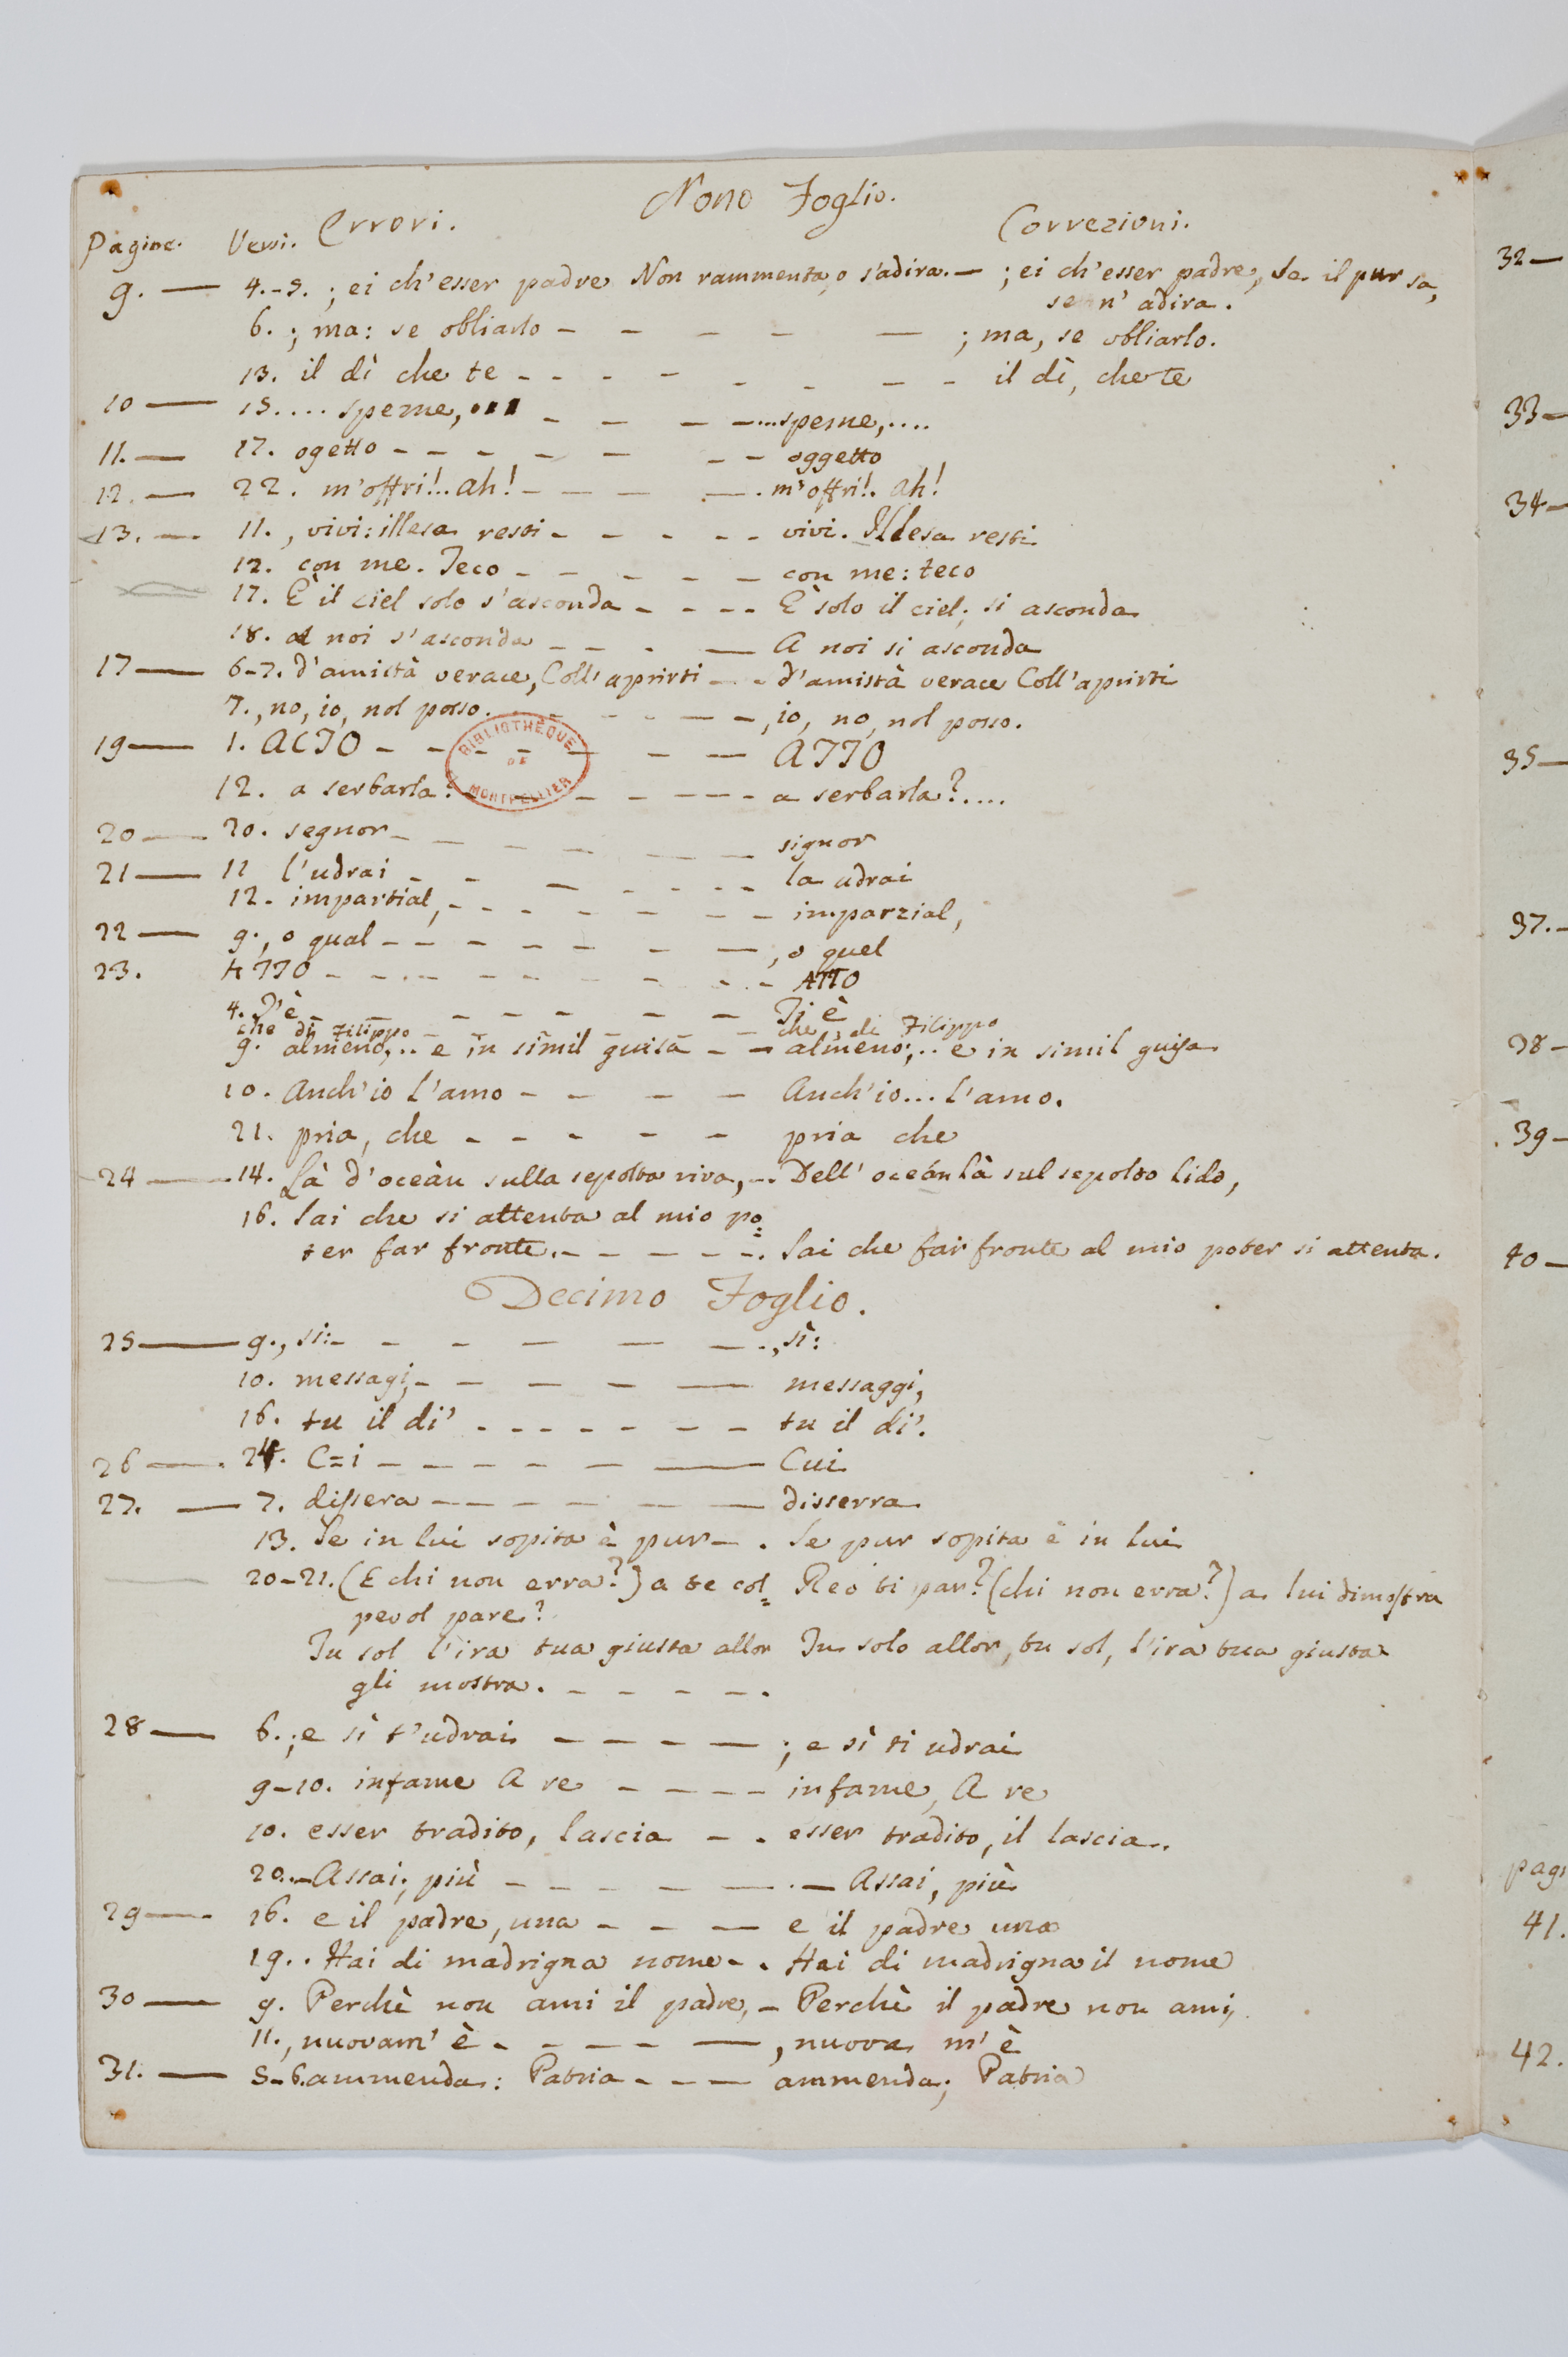 Nono Foglio.
Pagine. Versi. Errori. Correzioni.
9. — 4.-5. ; ei ch'esser padre Non rammenta, o s'adira. — ; ei ch'esser padre, Se il pur sa,
se n' adira.
6. ; ma: se obliarlo - - - - — ; ma, se obliarlo.
13. il dì che te - - - - - - - - il dì, che te
10 — 15. ... speme, ... - - - - ... speme, ....
11. — 17. ogetto - - - - - - - oggetto
12. — 22. m'offri!.. ah! - - - - . m'offri!. ah!
13. — 11. , vivi: illesa resti - - - - - vivi. Illesa resti
12. con me. Teco - - - - - con me: teco
17. È il ciel solo s'asconda - - - - È solo il ciel; si asconda
18. a noi s'asconda - - - — A noi si asconda
17 — 6-7. d'amistà verace, Coll'aprirti - - - d'amistà verace Coll'aprirti
7. , no, io, nol posso. - - - - - - , io, no, nol posso.
BIBLIOTHÈQUE
DE
MONTPELLIER
19 — 1. ACTO - - - - - — ATTO
12. a serbarla? - - - - - - a serbarla?....
20 — 20. segnor - - - - - - signor
21 — 11 l'udrai - - - - - - - la udrai
12. impartial, - - - - - - - imparzial,
22 — 9. , o qual - - - - - - — , o quel
23. ATTO - - - - - - - - - ATTO
4. T'è - - - - - - Ti è
che di Filippo - - - - - che, di Filippo
9. almeno,.. e in simil guisa - - almeno;.. e in simil guisa
10. Anch'io l'amo - - - - Anch'io... l'amo.
21. pria, che - - - - - pria che
24 — 14. Là d'oceàn sulla sepolta riva, -. Dell' oceán là sul sepolto lido,
16. Sai che si attenta al mio po=
ter far fronte. - - - - - -. Sai che far fronte al mio poter si attenta.
Decimo Foglio.
25 — 9. , si: - - - - - -. , sì:
10. messagi, - - - - — messaggi,
16. tu il di' - - - - - - - tu il di'.
26 — . 24. C=i - - - - - — Cui
27. — 7. dissera - - - - - — disserra
13. Se in lui sopita è pur - . Se pur sopita è in lui
20-21. (E chi non erra?) a te col= Reo ti par? (chi non erra?) a lui dimostra
pevol pare?
Tu sol l'ira tua giusta allor Tu solo allor, tu sol, l'ira tua giusta
gli mostra. - - - - -.
28 — 6. ; e sì t'udrai - - - - — ; e sì ti udrai
9-10. infame A re - - - - infame, A re
10. esser tradito, lascia - . esser tradito, il lascia.
20. - Assai; più - - - - - — . — Assai, più
29 — 16. e il padre, una - - — e il padre una
19. . Hai di madrigna nome - . Hai di madrigna il nome
30 — 9. Perchè non ami il padre, - Perchè il padre non ami,
11. , nuovam' è - - - - — , nuova m' è
31. — 5-6. ammenda: Patria - - — ammenda; Patria
32 —
33 —
34 —
35 —
37. -
38 -
39 -
40 —
41.
42.